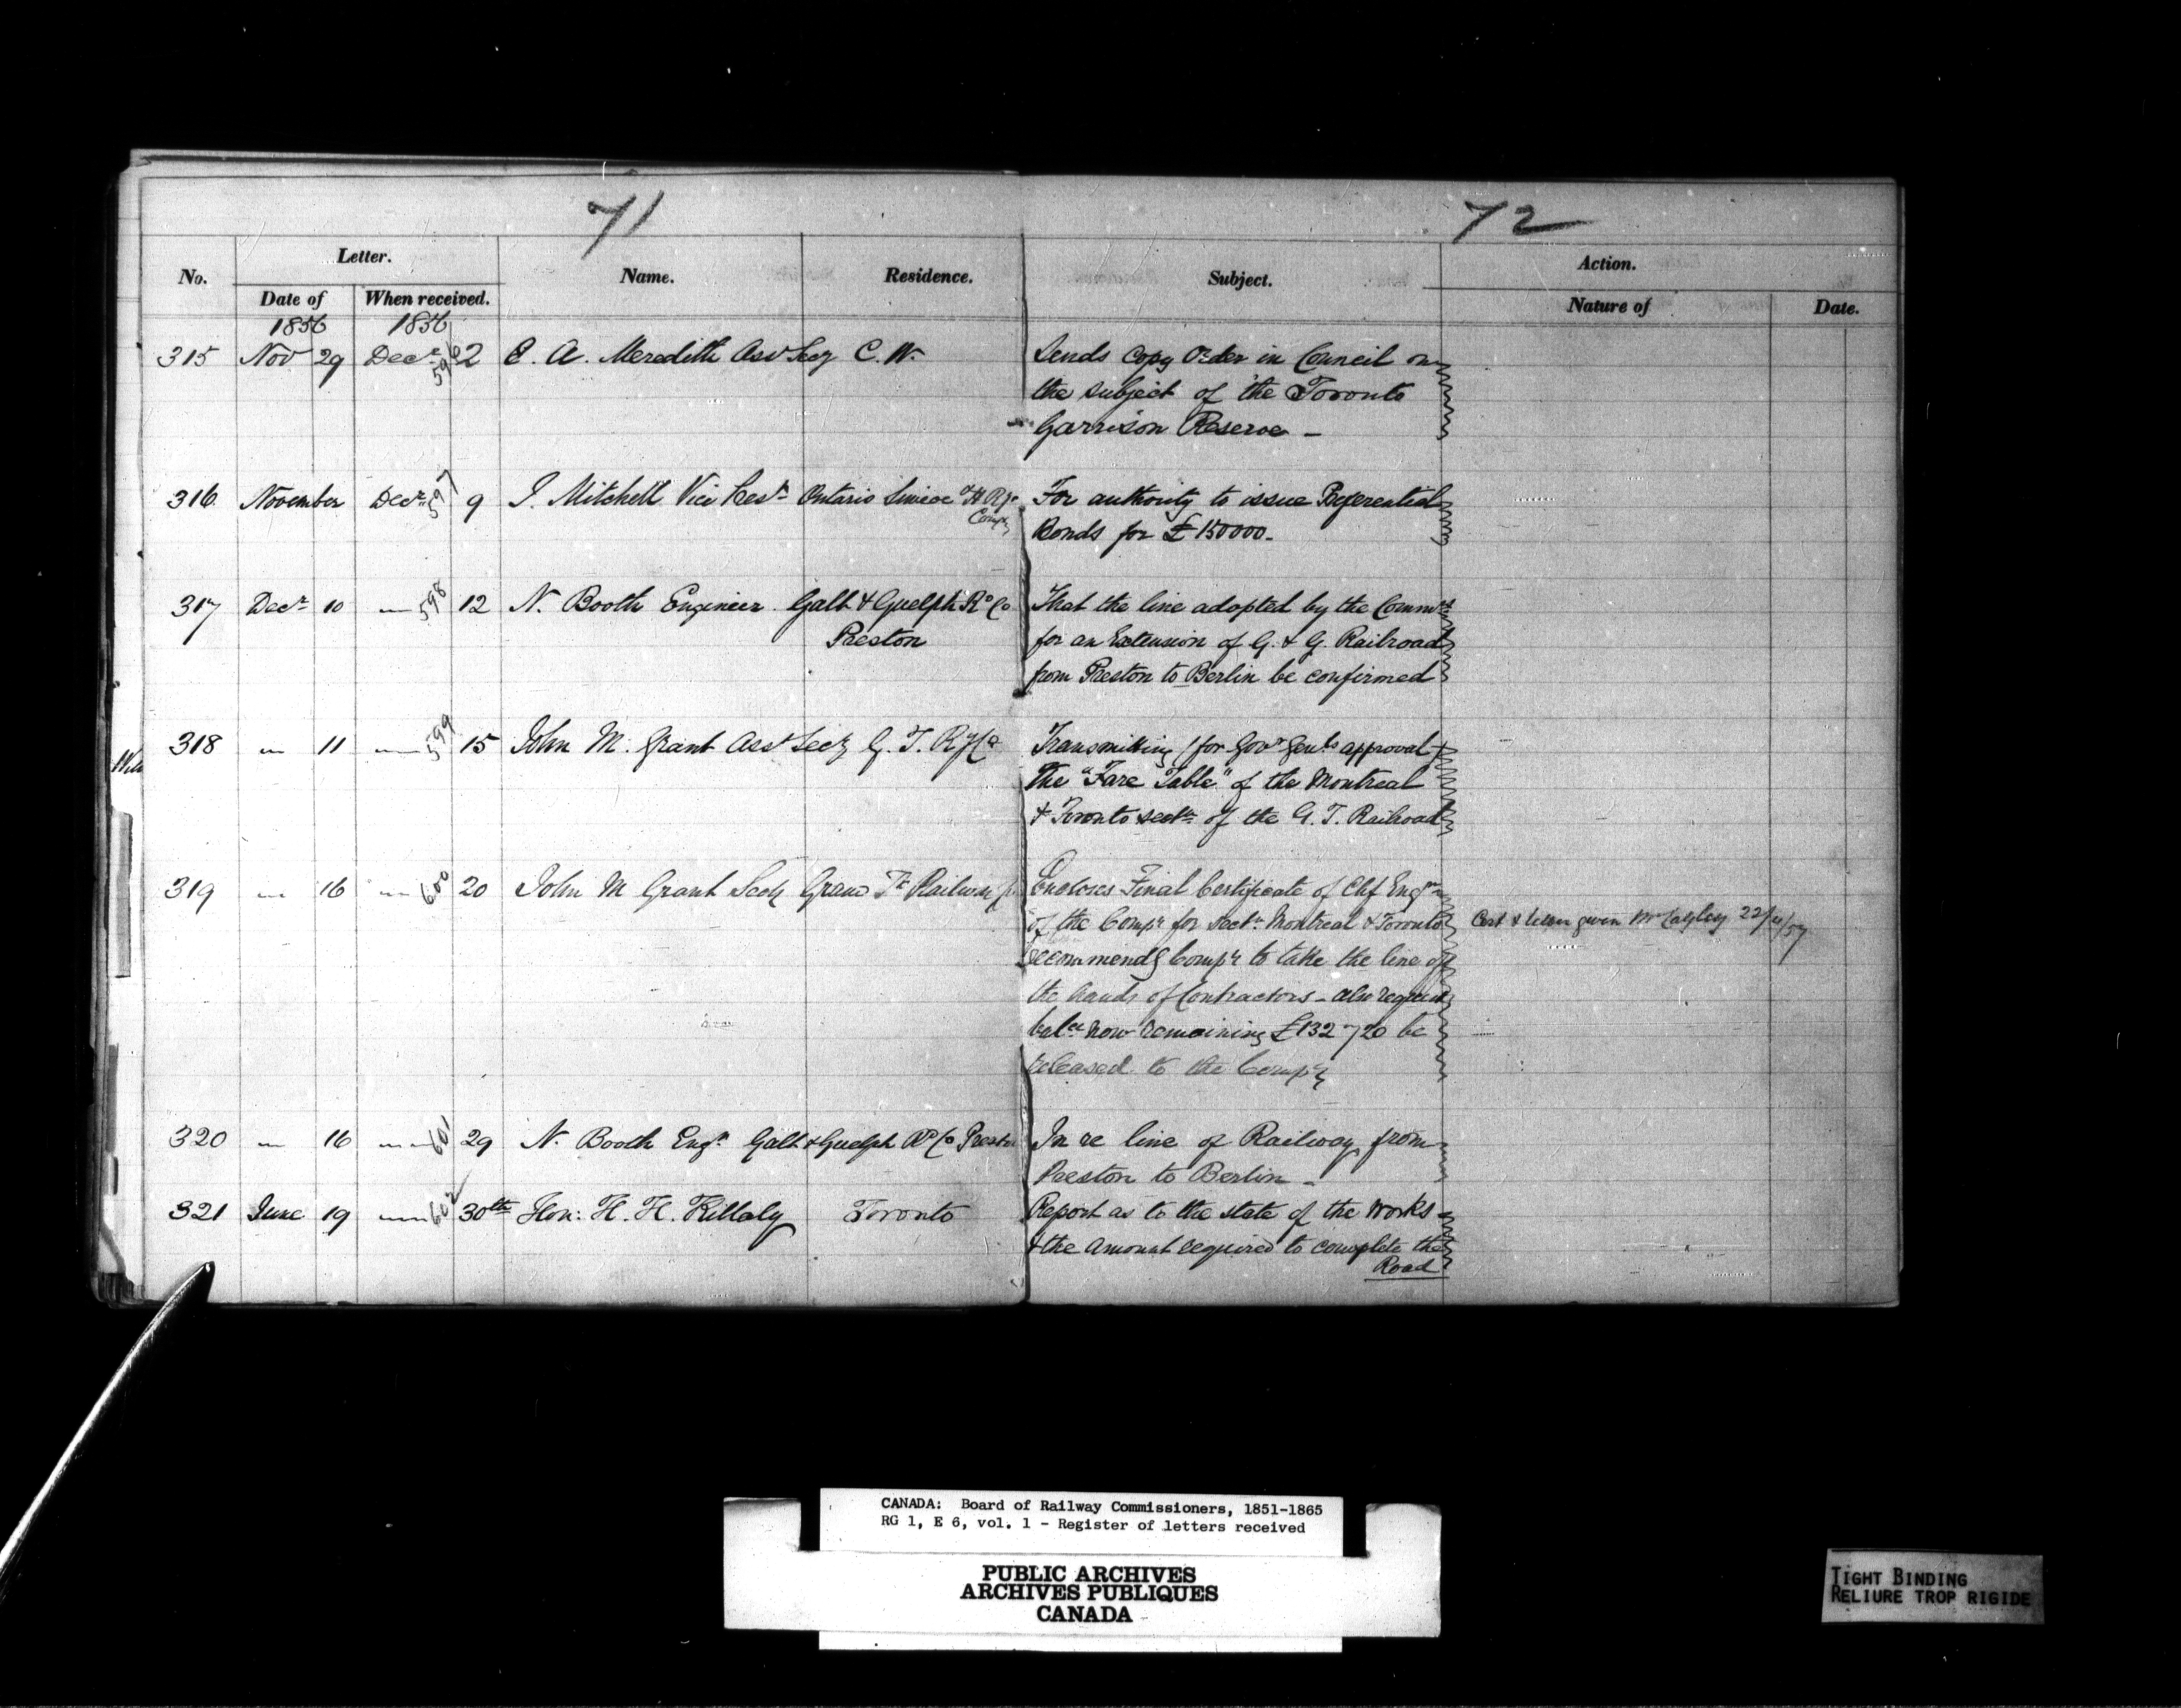 71
72
No. Letter. Name. Residence. Subject. Action.
Date of When received. Nature of Date.
1856 1856
315 Nov 29 Decr 596 2 E. A. Meredith Asst Secy C. W. Sends Copy Order in Council on
the subject of the Toronto
Garrison Reserve -
316 November Decr 597 9 J. Mitchell Vice Prest Ontario Simcoe & H Ry Preferential
Compy
For authority to issue Preferential
Bonds for £150000-
317 Decr 10 " 598 12 N. Booth Engineer Galt & Guelph Rd Co That the line adopted by the
Preston for an Extension of G. & G. Railroad
from Preston to Berlin be confirmed
318 " 11 " 599 15 John M. Grant Asst Secy G. T. Ry Co Transmitting (for Govr Genls approval)
The "Fare Table" of the Montreal
& Toronto sectn of the G. T. Railroad
319 " 16 " 600 20 John M Grant Secy Grand Tk Railway Encloses Final Certificate of Chf Engr
of the Compy for Sectn Montreal & Toronto Cert & letter given Mr Cayley 22/ /57
recommends Compy to take the line off
the hands of Contractors - also request
balce now remaining £132720 be
released to the Compy
320 " 16 " 601 29 N. Booth Engr Galt & Guelph Rd Co Preston In re line of Railway from
Preston to Berlin -
321 June 19 " 602 30th Hon: H. H. Killaly Toronto Report as to the state of the Works
& the amount required to complete the
Road
CANADA: Board of Railway Commissioners, 1851-1865
RG 1, E 6, vol. 1 - Register of letters received
PUBLIC ARCHIVES
ARCHIVES PUBLIQUES
CANADA
TIGHT BINDING
RELIURE TROP RIGIDE